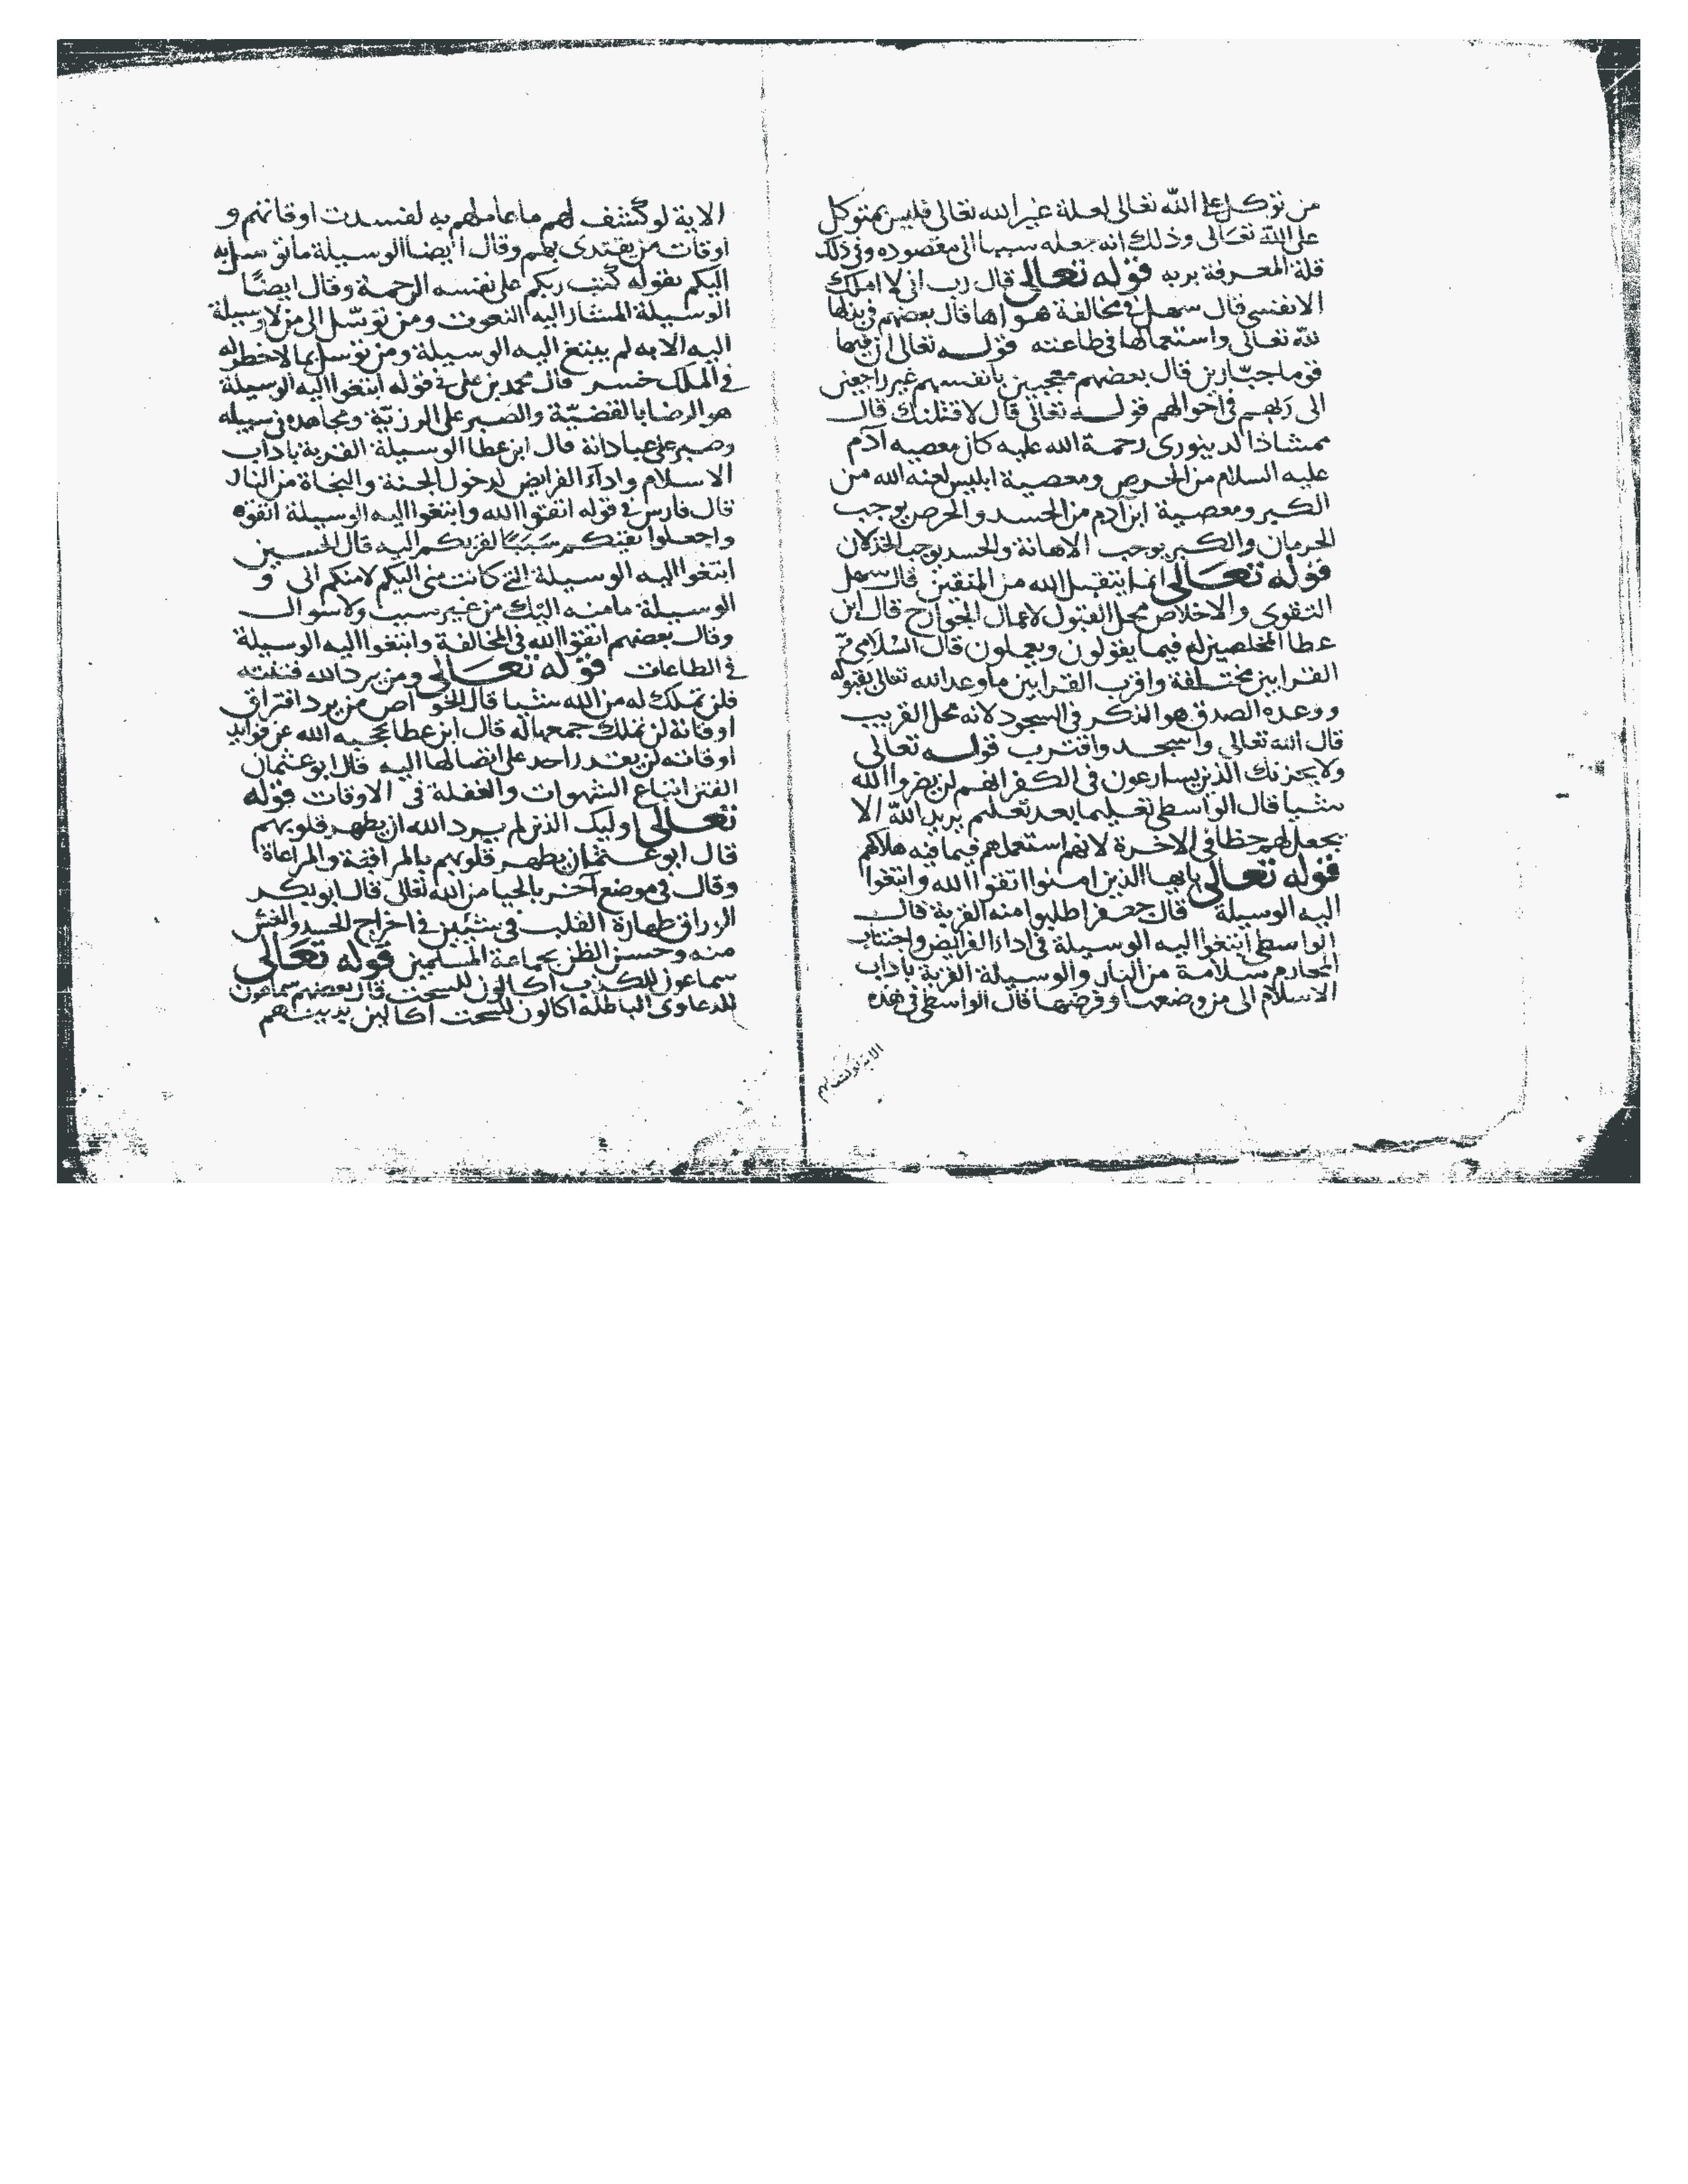 من توكل على الله تعالى لعلة غير الله تعالى فليس بمتوكل
على الله تعالى وذلك انه جعله سببا الى مقصوده وفي ذلك
قلة المعرفة بربه قوله تعالى قال رب انى لا املك
الا نفسى قال سهل فى مخالفة هواها قال بعضهم فى بذلها
لله تعالى واستعمالها فى طاعته قوله تعالى ان فيها
قوما جبارين قال بعضهم معجبين بانفسهم غير راجعين
الى ربهم فى احوالهم قوله تعالى قال لاقتلنك قال
ممشاذ الدينورى رحمة الله عليه كان معصيه آدم
عليه السلام من الحرص ومعصية ابليس لعنه الله من
الكبر ومعصية ابن آدم من الحسد والحرص يوجب
الحرمان والكبر يوجب الاهانة والحسد يوجب الخذلان
قوله تعالى انما يتقبل الله من المتقين قال سهل
التقوى والاخلاص محل القبول لاعمال الجوارح قال ابن
عطا المخلصين له فيما يقولون ويعملون قال السلامى
القرابين مختلفة واقرب القرابين ما وعد الله تعالى بقبوله
ووعده الصدق هو الذكر فى السجود لانه محل القريب
قال الله تعالى واسجد واقترب قوله تعالى
ولا يحزنك الذين يسارعون فى الكفر انهم لن يضروا الله
شيا قال الواسطى تعليما بعد تعليم يريد الله الا
يجعل لهم حظا فى الاخرة لانهم استعملهم فيما فيه هلاكهم
قوله تعالى يايها الذين امنوا اتقوا الله وابتغوا
اليه الوسيلة قال جعفر اطلبوا منه القربة قال
الواسطى ابتغوا اليه الوسيلة فى اداء الفرايض واجتناب
المحارم سلامة من النار والوسيلة القربة باداب
الاسلام الى من وضعها وفرضها قال الواسطى فى هذه
الاية لو كشف لهم
الاية لو كشف لهم ما عاملهم به لفسدت اوقاتهم و
اوقات من يقتدى بهم وقال ايضا الوسيلة ما توسل به
اليكم بقوله كتب ربكم على نفسه الرحمة وقال ايضا
الوسيلة المشار اليه النعوت ومن توسل الى من لا وسيلة
اليه الا به لم يبتغ اليه الوسيلة ومن توسل بما لا خطر له
فى الملك خسر قال محمد بن على فى قوله ابتغوا اليه الوسيلة
هو الرضا بالقضية والصبر على الرزية ومجاهده فى سبيله
وصبر على عباداته قال ابن عطا الوسيلة القربة باداب
الاسلام واداء الفرايض لدخول الجنة والنجاة من النار
قال فارس فى قوله اتقوا الله وابتغوا اليه الوسيلة اتقوه
واجعلوا تقيتكم سببا لقربكم اليه قال الحسين
ابتغوا اليه الوسيلة التى كانت منى اليكم لا منكم الى و
الوسيلة ما منه اليك من غير سبب ولا سوال
وقال بعضهم اتقوا الله فى المخالفة وابتغوا اليه الوسيلة
فى الطاعات قوله تعالى ومن يرد الله فتنته
فلن تملك له من الله شيا قال الخواص من يرد افتراق
اوقاته لن تملك جمعها له قال ابن عطا يحجبه الله عن فوايد
اوقاته لن يقدر احد على ايصالها اليه قال ابو عثمان
الفتن اتباع الشهوات والغفلة فى الاوقات قوله
تعالى اوليك الذين لم يرد الله ان يطهر قلوبهم
قال ابو عثمان يطهر قلوبهم بالمراقبة والمراعاة
وقال فى موضع آخر بالحيا من الله تعالى قال ابو بكر
الوراق طهارة القلب فى شيئين فى اخراج الحسد والغش
منه وحسن الظن بجماعة المسلمين قوله تعالى
سماعون للكذب اكالون للسحت قال بعضهم سماعون
للدعاوى الباطلة اكالون للسحت اكالين بدينهم